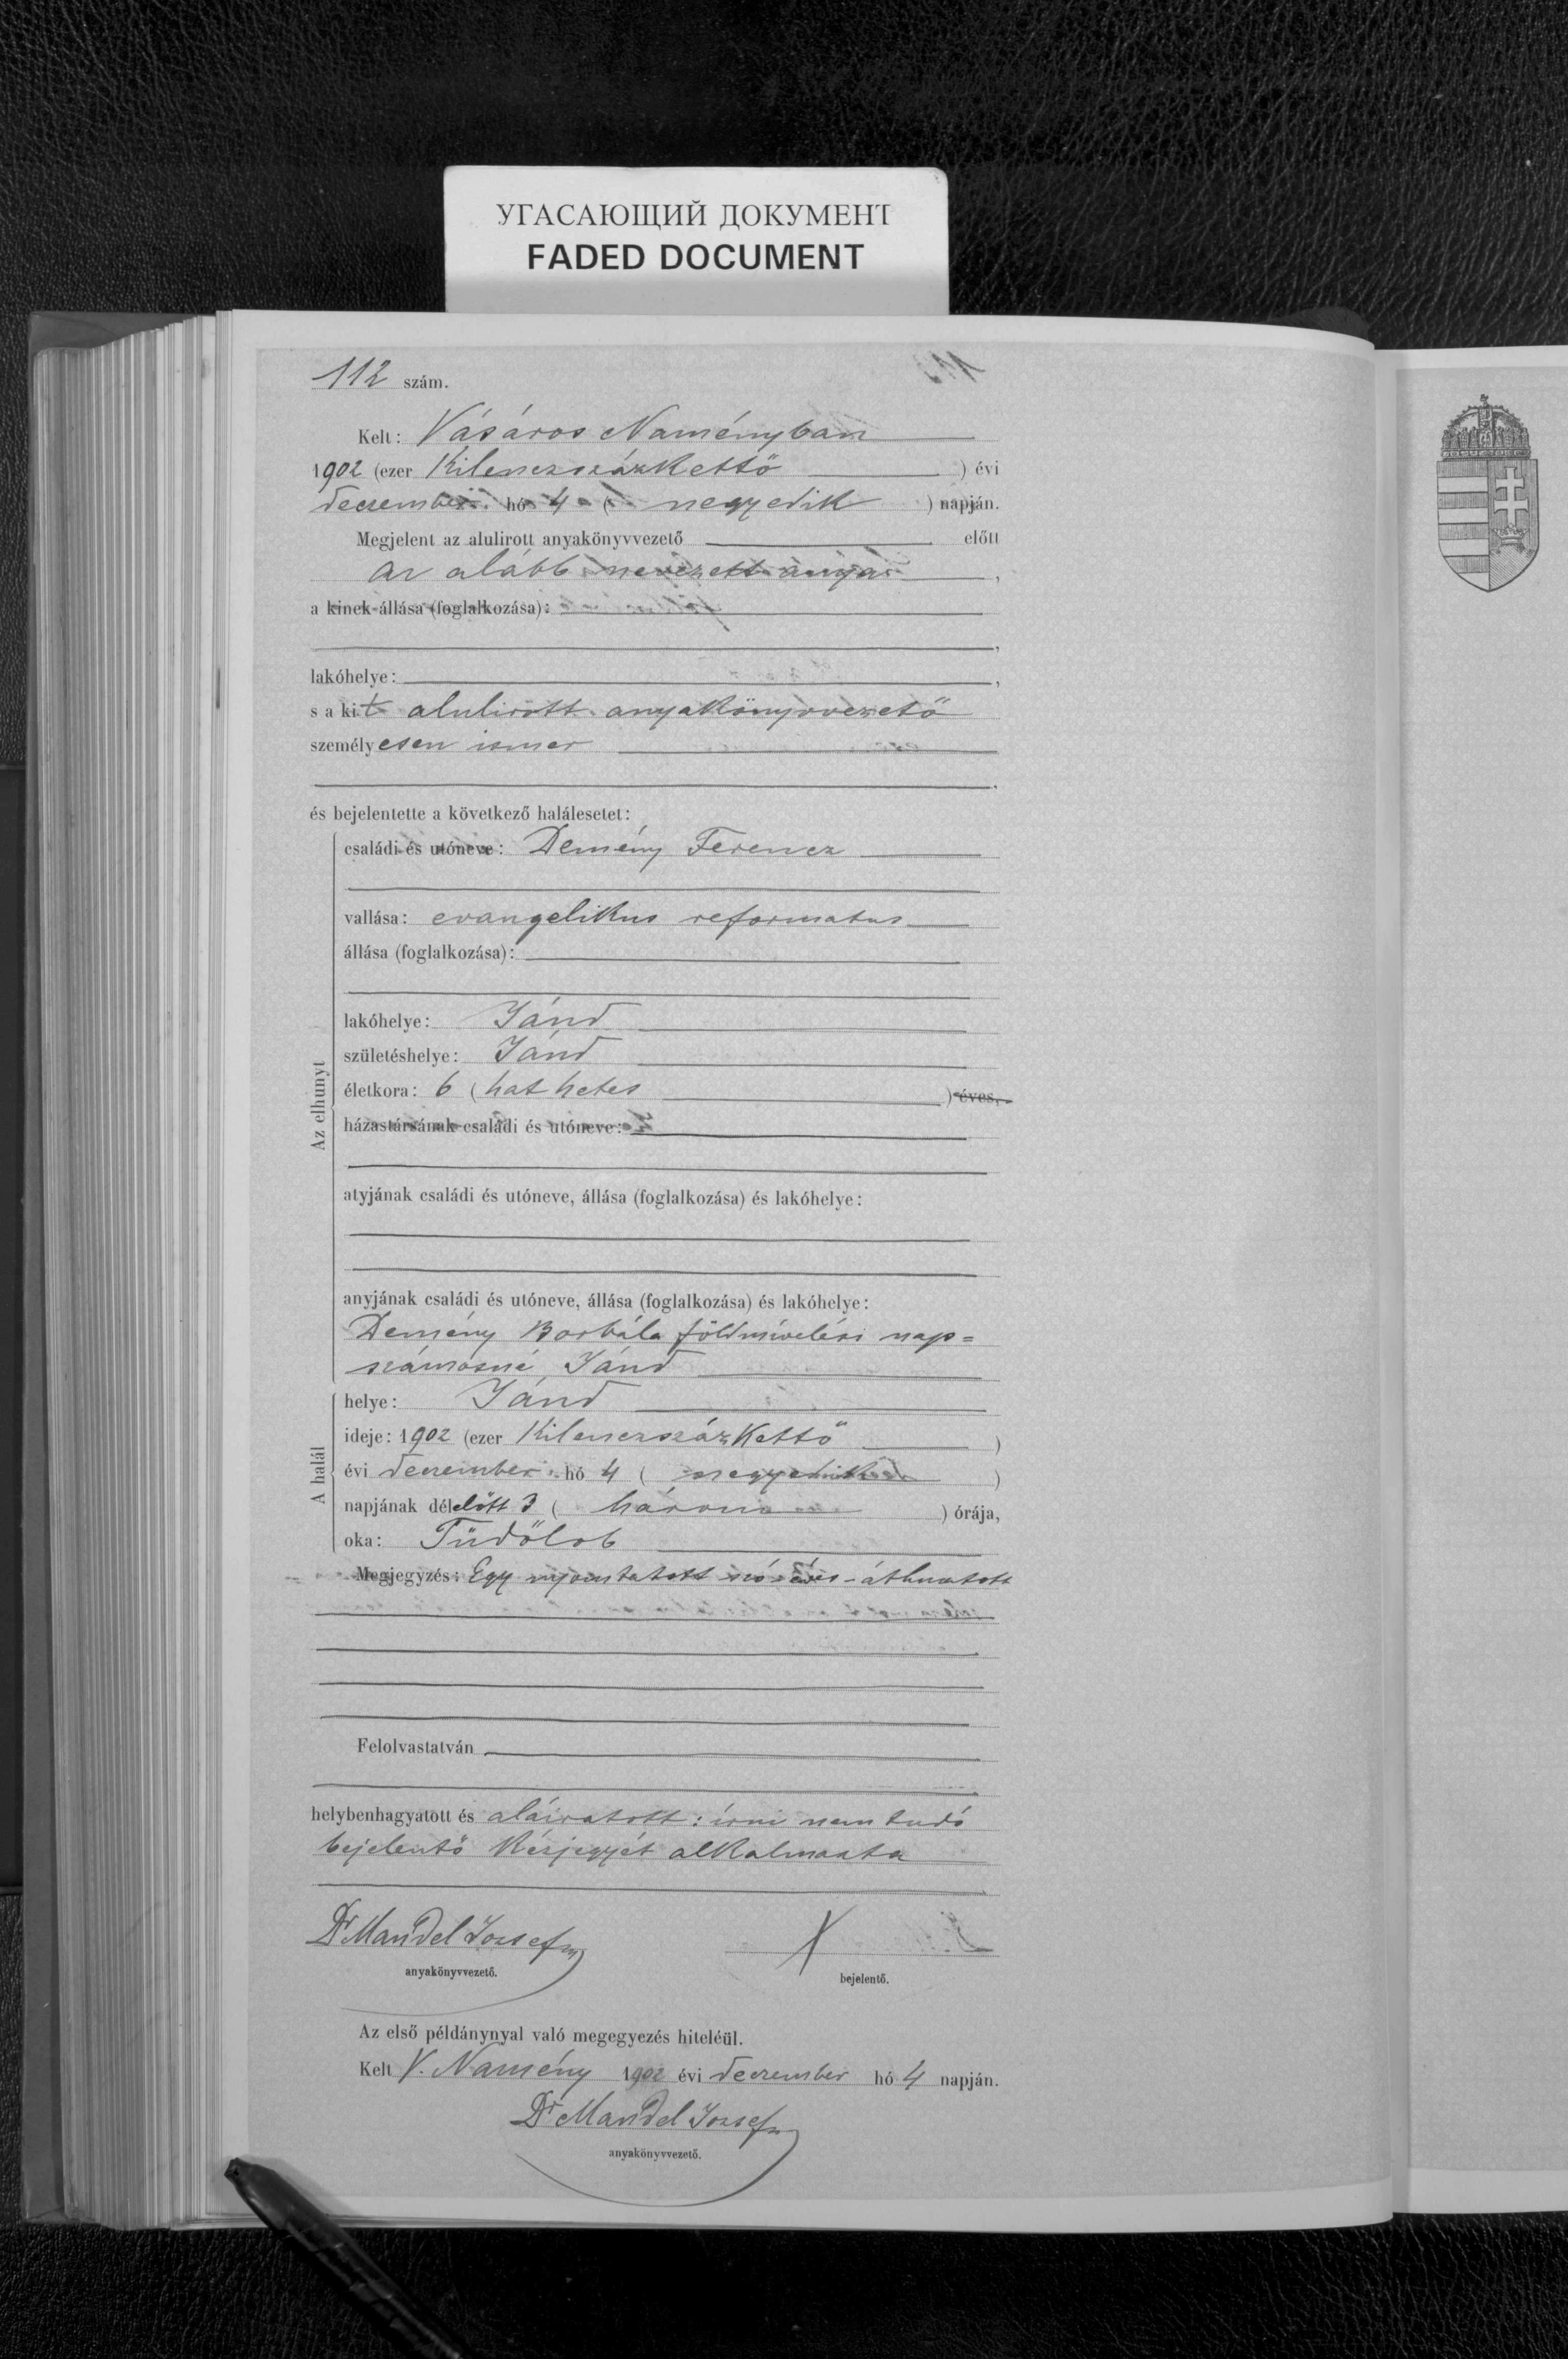 УГАСАЮЩИЙ ДОКУМЕНТ
FADED DOCUMENT
112 szám.
Kelt: Vásáros Naményban
1902 (ezer Kilenczszázkettő ) évi
deczember hó 4 ( negyedik ) napján.
Megjelent az alulirott anyakönyvvezető előtt
az alább nevezett anyja ,
a kinek állása (foglalkozása):
,
lakóhelye: ,
s a kit alulirott anyakönyvvezető
személyesen ismer
.
és bejelentette a következő halálesetet:
Az elhunyt
családi és utóneve: Demény Ferencz
vallása: evangelikus reformatus
állása (foglalkozása):
lakóhelye: Jánd
születéshelye: Jánd
életkora: 6 (hat hetes ) éves,
házastársának családi és utóneve:
atyjának családi és utóneve, állása (foglalkozása) és lakóhelye:
anyjának családi és utóneve, állása (foglalkozása) és lakóhelye:
Demény Borbála földmivelési nap=
számosné Jánd
A halál
helye: Jánd
ideje: 1902 (ezer Kilenczszázkettő )
évi deczember hó 4 ( negyedik )
napjának délelőtt 3 ( három ) órája,
oka: Tüdőlob
Megjegyzés: Egy nyomtatott szó éves áthuzatott
Felolvastatván
helybenhagyatott és aláiratott: írni nem tudó
bejelentő kézjegyét alkalmazta
Dr Mandel Jozsef
X
anyakönyvvezető.
bejelentő.
Az első példánynyal való megegyezés hiteléül.
Kelt V. Namény 1902 évi deczember hó 4 napján.
Dr Mandel Jozsef
anyakönyvvezető.